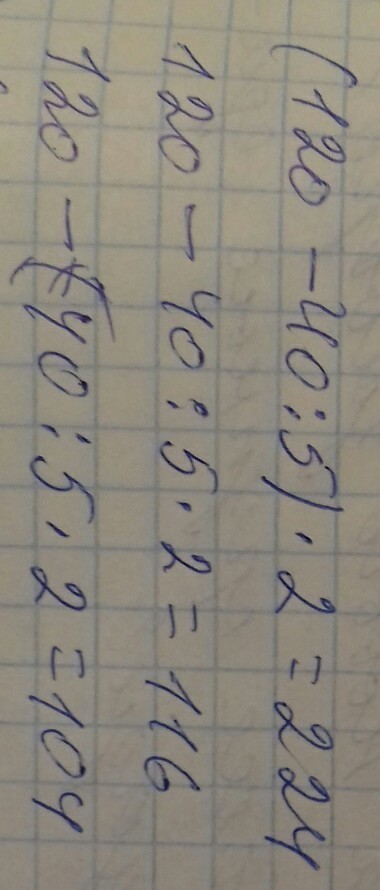 (120 - 40 : 5) · 2 = 224
120 - 40 : 5 · 2 = 116
120 - 40 : 5 · 2 = 104